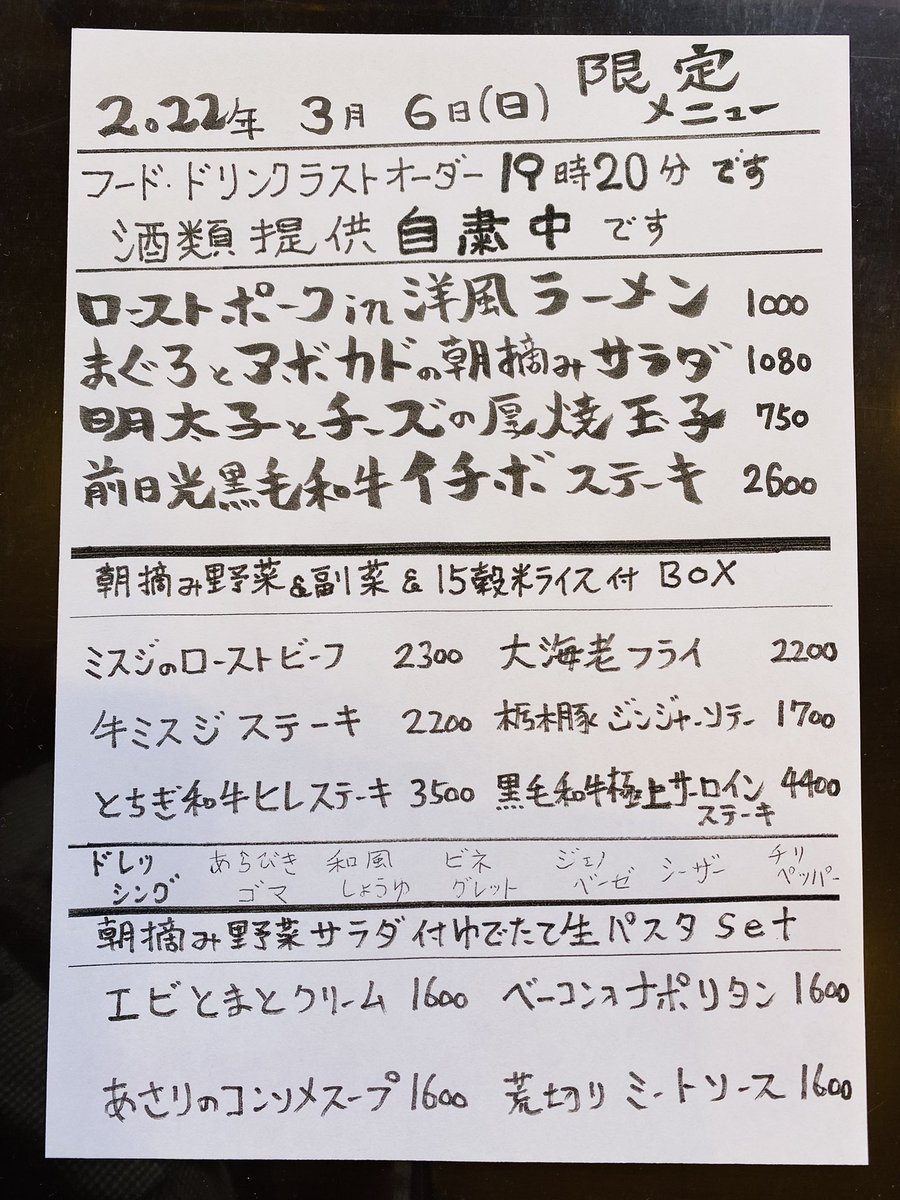 2022年 3月 6日(日) 限定メニュー
フード・ドリンクラストオーダー 19時20分 です
酒類提供 自粛中 です
ローストポーク in 洋風ラーメン 1000
まぐろとアボカドの朝摘みサラダ 1080
明太子とチーズの厚焼玉子 750
前日光黒毛和牛イチボステーキ 2600
朝摘み野菜&副菜&15穀米ライス付 BOX
ミスジのローストビーフ 2300 大海老フライ 2200
牛ミスジステーキ 2200 栃木豚ジンジャーソテー 1700
とちぎ和牛ヒレステーキ 3500 黒毛和牛極上サーロインステーキ 4400
ドレッシング あらびきゴマ 和風しょうゆ ビネグレット ジェノベーゼ シーザー チリペッパー
朝摘み野菜サラダ付ゆでたて生パスタ set
エビとまとクリーム 1600 ベーコンのナポリタン 1600
あさりのコンソメスープ 1600 荒切りミートソース 1600